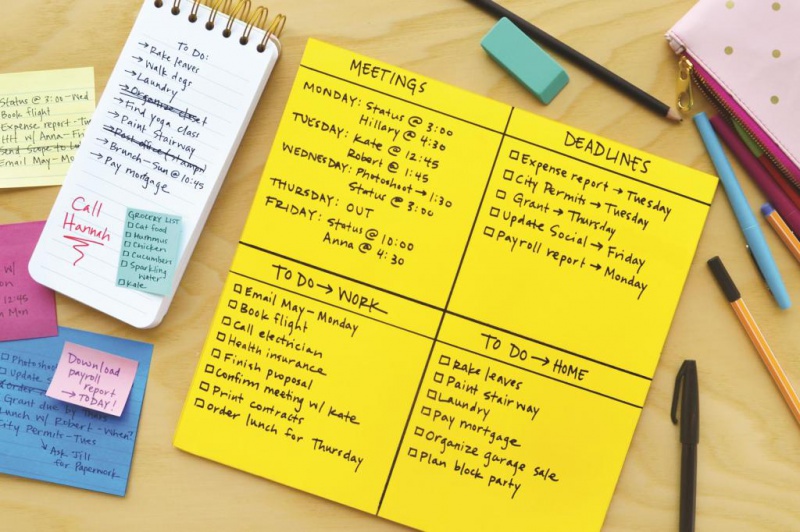 To Do:
→ Rake leaves
→ Walk dogs
→ Laundry
→ Organize closet
→ Find yoga class
→ Paint Stairway
→ Post office (stamps)
→ Brunch - Sun @ 10:45
→ Pay mortgage
Call
Hannah
GROCERY LIST
Cat food
Hummus
Chicken
Cucumber
Sparkling
water
Kale
Status @ 3:00 - Wed
Book flight
Expense report - Tu
HH w/ Anna - Fri
Send Scope to
Email May - Mo
w/
on
12:45
on Mon
Photosho
Update S
Grant due by
Lunch w/ Robert - When?
City Permits - Tues
↳ Ask Jill
for Paperwork
Download
payroll
report
→ TODAY!
MEETINGS
MONDAY: Status @ 3:00
Hillary @ 4:30
TUESDAY: Kate @ 12:45
Robert @ 1:45
WEDNESDAY: Photoshoot → 1:30
Status @ 3:00
THURSDAY: OUT
FRIDAY: Status @ 10:00
Anna @ 4:30
DEADLINES
Expense report → Tuesday
City Permits → Tuesday
Grant → Thursday
Update Social → Friday
Payroll report → Monday
TO DO → WORK
Email May - Monday
Book flight
Call electrician
Health insurance
Finish proposal
Confirm meeting w/ Kate
Print contracts
Order lunch for Thursday
TO DO → HOME
Rake leaves
Paint stairway
Laundry
Pay mortgage
Organize garage sale
Plan block party